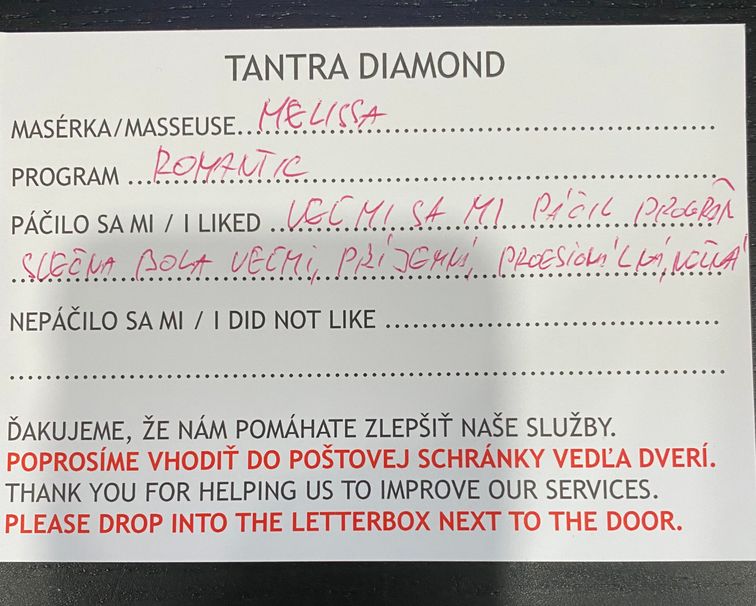 TANTRA DIAMOND
MASÉRKA/MASSEUSE...MELISSA...
PROGRAM ...ROMANTIC...
PÁČILO SA MI / I LIKED ...VEĽMI SA MI PÁČIL PROGRAM
SLEČNA BOLA VEĽMI, PRÍJEMNÁ,
NEPÁČILO SA MI / I DID NOT LIKE ...
ĎAKUJEME, ŽE NÁM POMÁHATE ZLEPŠIŤ NAŠE SLUŽBY.
POPROSÍME VHODIŤ DO POŠTOVEJ SCHRÁNKY VEDĽA DVERÍ.
THANK YOU FOR HELPING US TO IMPROVE OUR SERVICES.
PLEASE DROP INTO THE LETTERBOX NEXT TO THE DOOR.